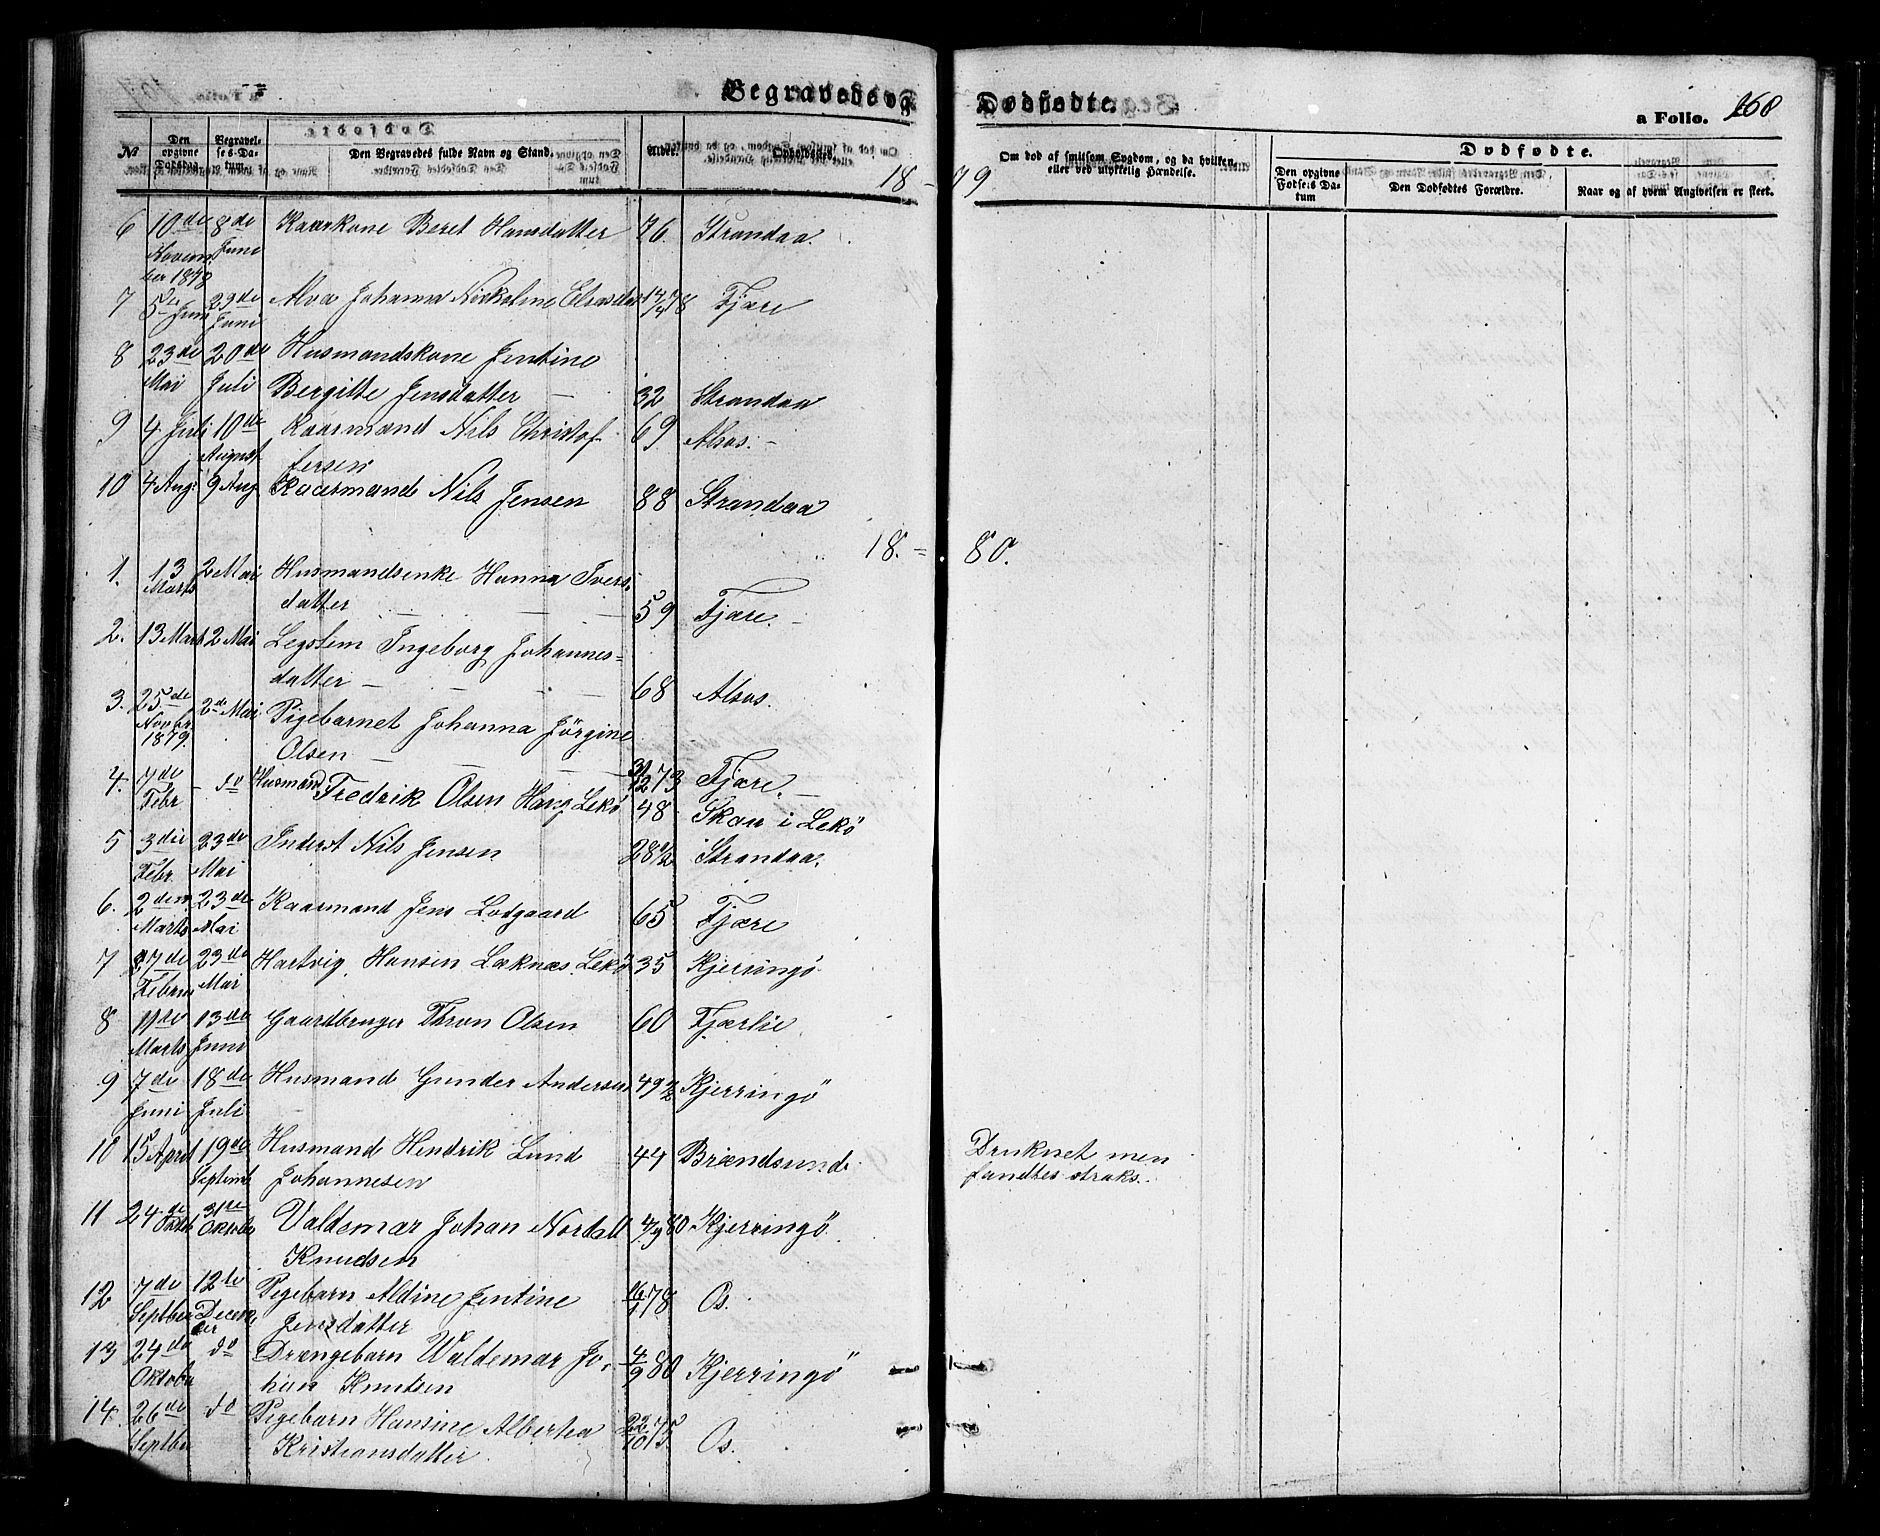 Begravede og Dødfødte.
a Folio. 268
No
Den opgivne Dødsdag.
Begravelses-Datum.
Den Begravedes fulde Navn og Stand.
Alder.
Opholdssted.
Om død af smitsom Sygdom, og da hvilken, eller ved ulykkelig Hændelse.
Dødfødte.
Den opgivne Fødsels Datum
Den Dødfødtes Forældre.
Naar og af hvem Angivelsen er skeet.
18 - 79
6 10de November 1878 8de June Kaarkone Beret Hansdatter 76. Strandaa.
7 5te Juni 29de Juni Alva Johanna Nickoline Eliasdtr 14/4 78 Fjære
8 23de Mai 20de Juli Husmandskone Jentine
Bergitte Jensdatter — 32 Strandaa
9 4 Juli 10de August Kaarmand Nils Christof-
fersen 69 Alsos. -
10 4 Aug: 9 Aug Kaarmand Nils Jensen 88 Strandaa
18. = 80.
1. 13 Marts 2 Mai Husmandsenke Hanna Ivers-
datter — — — 59 Fjære. -
2. 13 Marts 2 Mai Legslem Ingeborg Johannes=
datter — — — — 68 Alsos.
3. 25de Novbr. 1879. 2de Mai. Pigebarnet Johanna Jørgine
Olsen — — — — 31/12 73 Fjære. -
4. 7de Febr - do Husmand Fredrik Olsen Haug Lekø 48 Skau i Lekø
5 3die Febr. 23de Mai Inderst Nils Jensen 28 1/2 Strandaa.
6. 2den Marts 23de Mai Kaarmand Jens Lodgaard 65 Fjære
7 27de Februar 23de Mai Hartvig Hansen Læknæs Lekø 35 Kjerringø
8 11te Marts 13de Juni Gaardbruger Thron Olsen 60 Fjærlie
9 7de Juni 18de Juli Husmand Gunder Andersen 49 1/2 Kjerringø
10 15 April 19de Septemb Husmand Hendrik Lund
Johannesen 44 Brændsund. Druknet men
fandtes straks.
11 24de Oktob 31te Oktober Valdemar Johan Nordall
Knudsen 4/9 80 Kjerringø.
12 7de Septber 12te December Pigebarn Aldine Jentine
Jensdatter 16/1 78 Os.
13 24de Oktober do Drængebarn Waldemar Jo-
han Knutsen 4/9 80 Kjerringø
14. 26de Septber do Pigebarn Hansine Albertea
Kristiansdatter 22/10 75 Os.